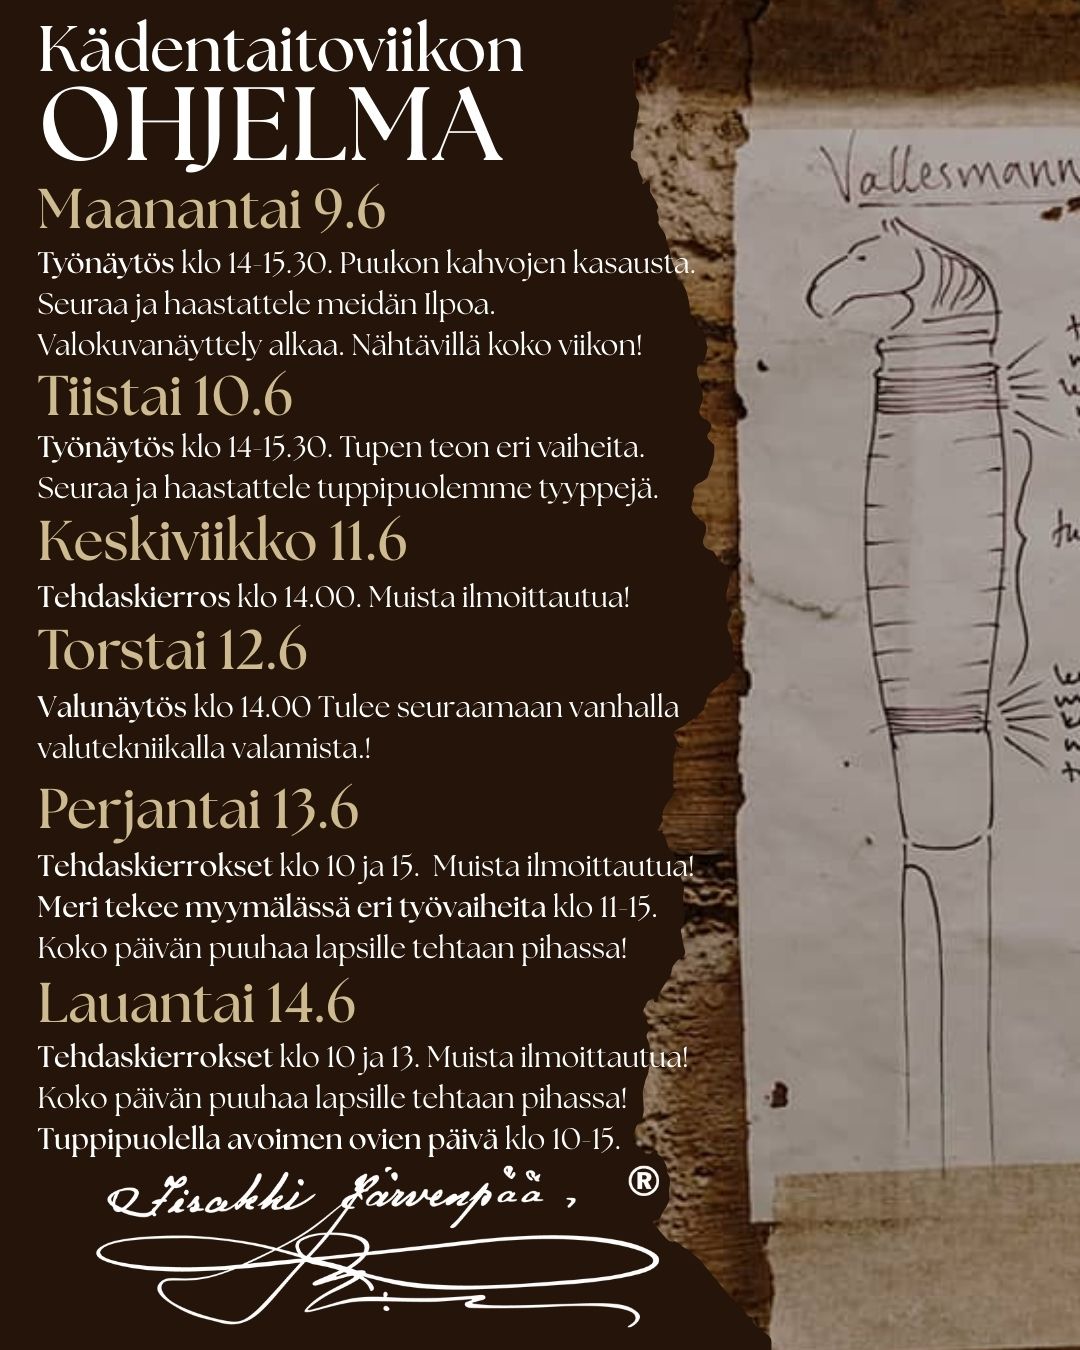 Kädentaitoviikon
OHJELMA
Maanantai 9.6
Työnäytös klo 14-15.30. Puukon kahvojen kasausta.
Seuraa ja haastattele meidän Ilpoa.
Valokuvanäyttely alkaa. Nähtävillä koko viikon!
Tiistai 10.6
Työnäytös klo 14-15.30. Tupen teon eri vaiheita.
Seuraa ja haastattele tuppipuolemme tyyppejä.
Keskiviikko 11.6
Tehdaskierros klo 14.00. Muista ilmoittautua!
Torstai 12.6
Valunäytös klo 14.00 Tulee seuraamaan vanhalla
valutekniikalla valamista.!
Perjantai 13.6
Tehdaskierrokset klo 10 ja 15.  Muista ilmoittautua!
Meri tekee myymälässä eri työvaiheita klo 11-15.
Koko päivän puuhaa lapsille tehtaan pihassa!
Lauantai 14.6
Tehdaskierrokset klo 10 ja 13. Muista ilmoittautua!
Koko päivän puuhaa lapsille tehtaan pihassa!
Tuppipuolella avoimen ovien päivä klo 10-15.
Iisakki Järvenpää, ®
Vallesmann